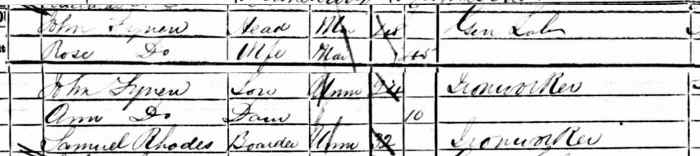 John Tynen Head Mar Gen Lab
Rose Do Wife Mar 45
John Tynen Son Unm 24 Ironworker
Ann Do Daur 10
Samuel Rhodes Boarder Unm 32 Ironworker